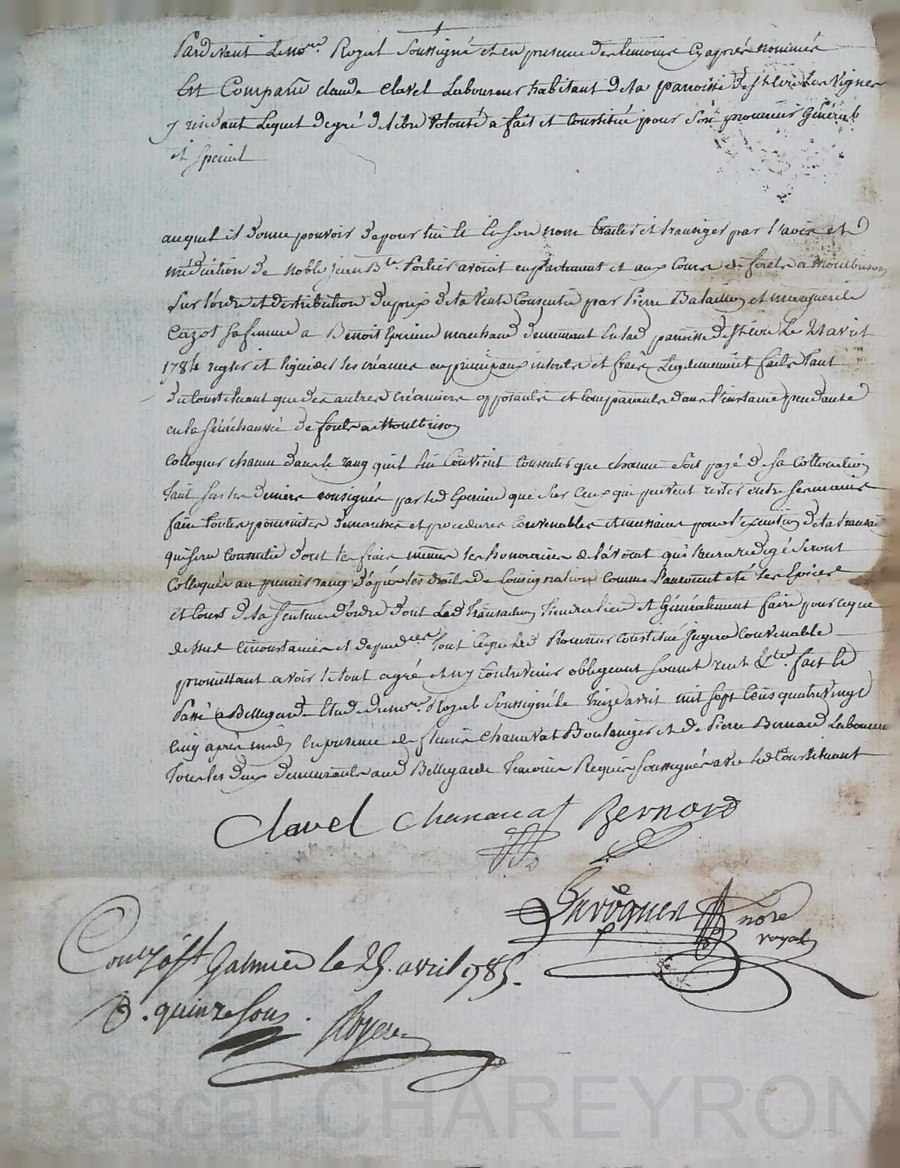 Pardevant Le no.re Royal Soussigné et en presence des temoins cy apres nommés
Est Comparu claude Clavel Laboureur habitant de la paroisse de st Cir Les Vignes
y residant Lequel de gré et libre Volonté a fait et Constitué pour Son procureur Général
et Special
auquel il donne pouvoir de pour lui et en Son nom traiter et transiger par l'avis et
médiation de noble jean B.te avocat en parlement et aux Cours de forets a Montbrison
Sur l'ordre et distribution du prix de la Vente Consentie par Pierre Bataillon et marguerite
Cazot Sa femme a Benoit Epinat marchand demeurant en lad. paroisse de st Cir Le 21 avril
1784 regler et liquider les créances en principaux interets et frais Legitimement faits tant
du Constituant que des autres créanciers opposants et Comparants dans l'instance pendante
en la Sénéchaussée de forets a Montbrison
Colloquer chacun dans le rang qui lui Convient Consentir que chacun Soit payé de sa Collocation
tant Sur les deniers consignés par led. que Sur Ceux qui peuvent rester entre Ses mains
faire toutes poursuites demarches et procedures Convenables et necessaires pour l'execution de la transaction
qui Sera Consentie dont les frais même les honoraires de l'avocat qui l'aura redigé Seront
Colloqués au premier rang d'après les droits de Consignation Comme l'auroient été les Epices
et Cours de la Sentence d'ordre dont Lad. transaction tiendra lieu et Généralement faire pour ce que
dessus Circonstances et dependces tout Ce que led. Procureur Constitué jugera Convenable
promettant avoir le tout agréé et n'y Contrevenir obligeant Soumet. rent. &c. fait et
Passé a Bellegarde Etude du no.re Royal Soussigné Le treize avril mil Sept Cens quatre vingt
Cinq après midy En presence de fleurie Chanavat Boulanger et de Pierre Bernard Laboureur
tous les deux demeurants aud. Bellegarde temoins Requis Soussignés avec led. Constituant
Clavel Chanavat Bernard
nore
royal
Con.lé a st Galmier le 25 avril 1785.
R. quinze Sous.
Royere
Pascal CHAREYRON